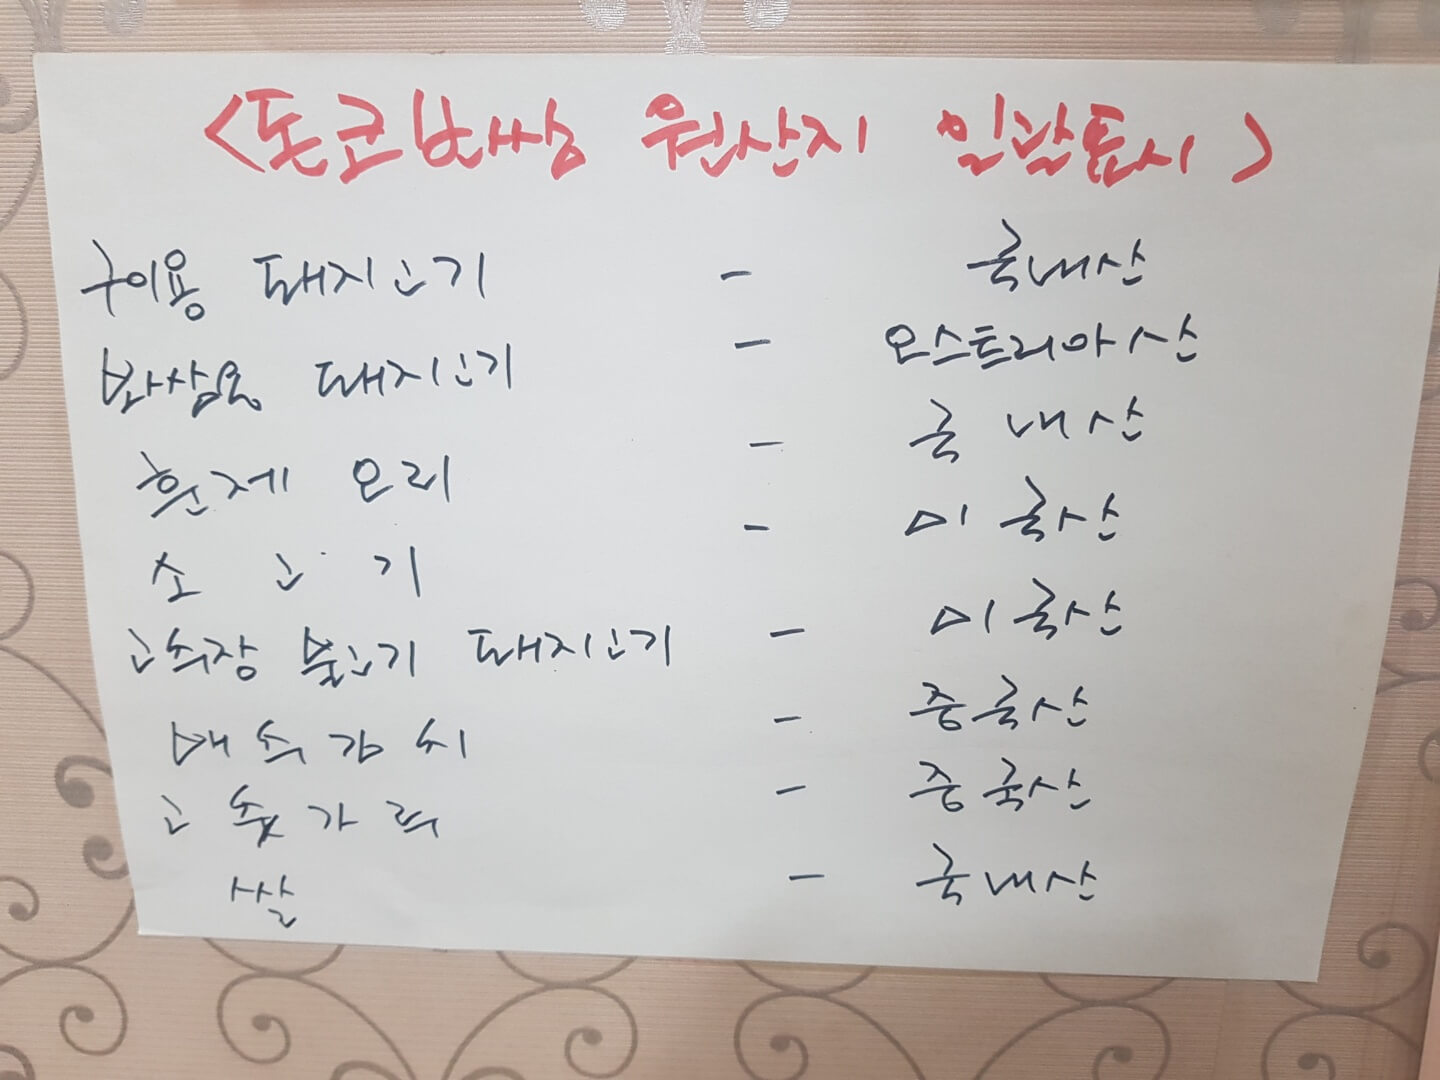 <돈코보쌈 원산지 일괄표시>
구이용 돼지고기 - 국내산
보쌈용 돼지고기 - 오스트리아산
훈제 오리 - 국내산
소고기 - 미국산
고추장 불고기 돼지고기 - 미국산
배추김치 - 중국산
고춧가루 - 중국산
쌀 - 국내산